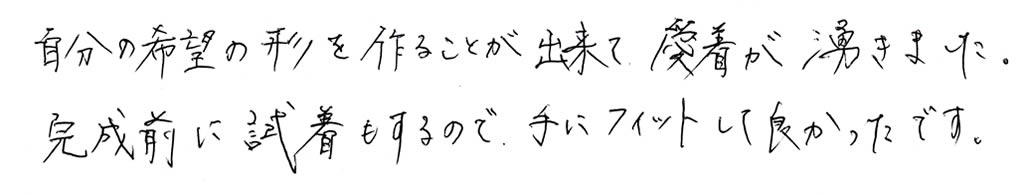 自分の希望の形を作ることが出来て、愛着が湧きました。
完成前に試着もするので、手にフィットして良かったです。